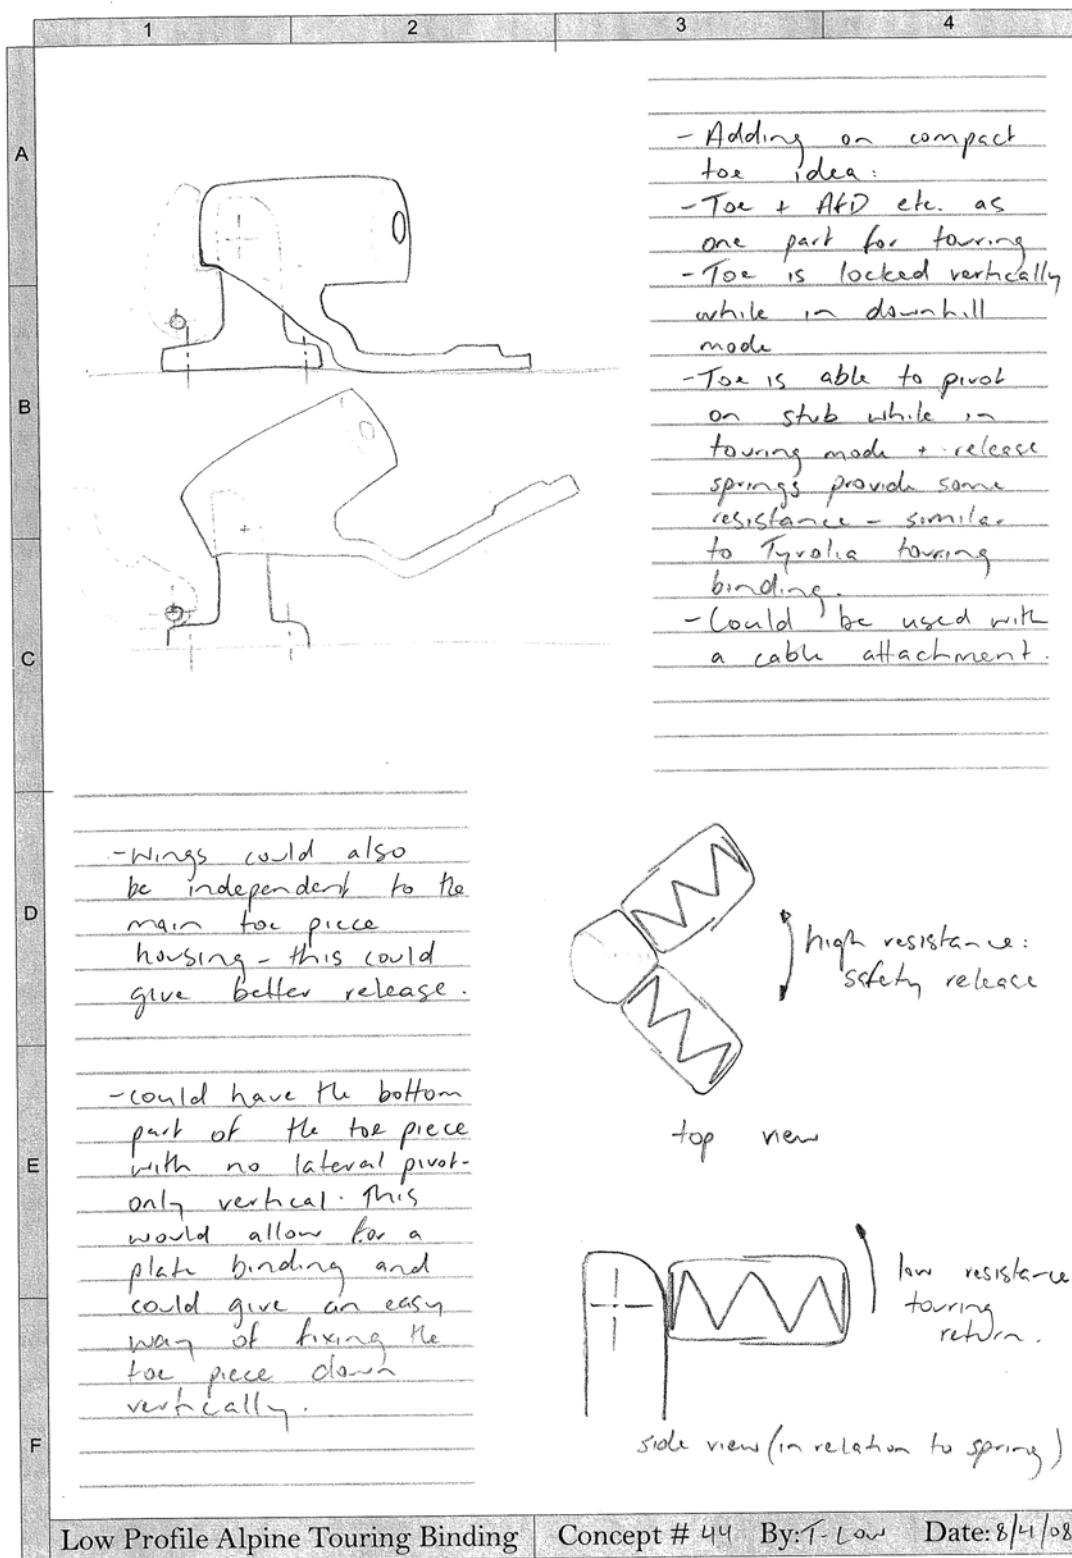 1 2 3 4
A
B
C
D
E
F
- Adding on compact
toe idea:
- Toe + AFD etc. as
one part for touring
- Toe is locked vertically
while in downhill
mode
- Toe is able to pivot
on stub while in
touring mode + release
springs provide some
resistance - similar
to Tyrolia touring
binding.
- Could be used with
a cable attachment.
- Wings could also
be independent to the
main toe piece
housing - this could
give better release.
- could have the bottom
part of the toe piece
with no lateral pivot -
only vertical. This
would allow for a
plate binding and
could give an easy
way of fixing the
toe piece down
vertically.
high resistance:
safety release
top view
low resistance
touring
return.
side view (in relation to spring)
Low Profile Alpine Touring Binding Concept # 44 By: T-Low Date: 8/4/08